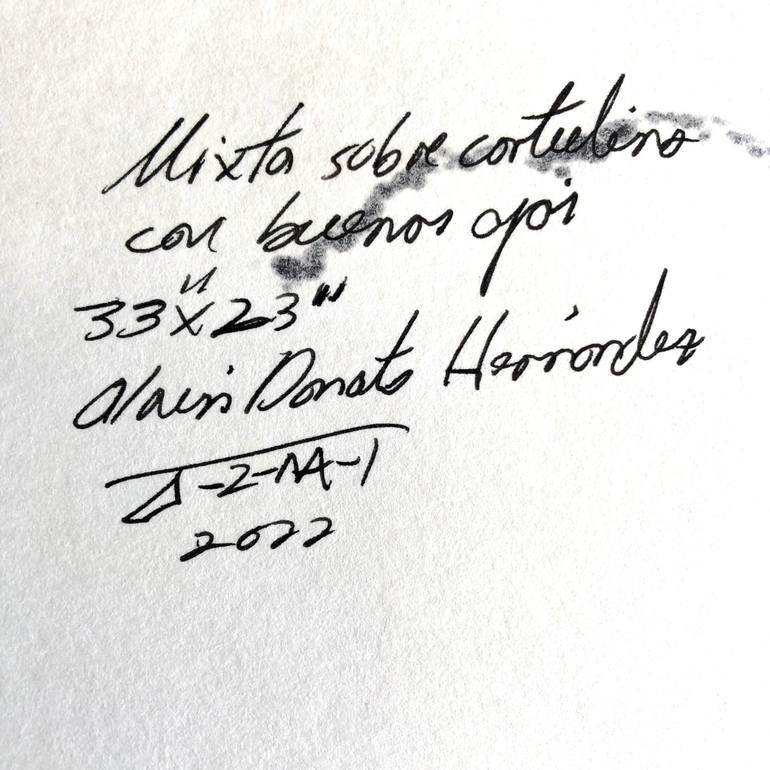 Mixta sobre cartulina
con buenos
33"x23"
Alain Donato Hernández
-2-NA-1
2022